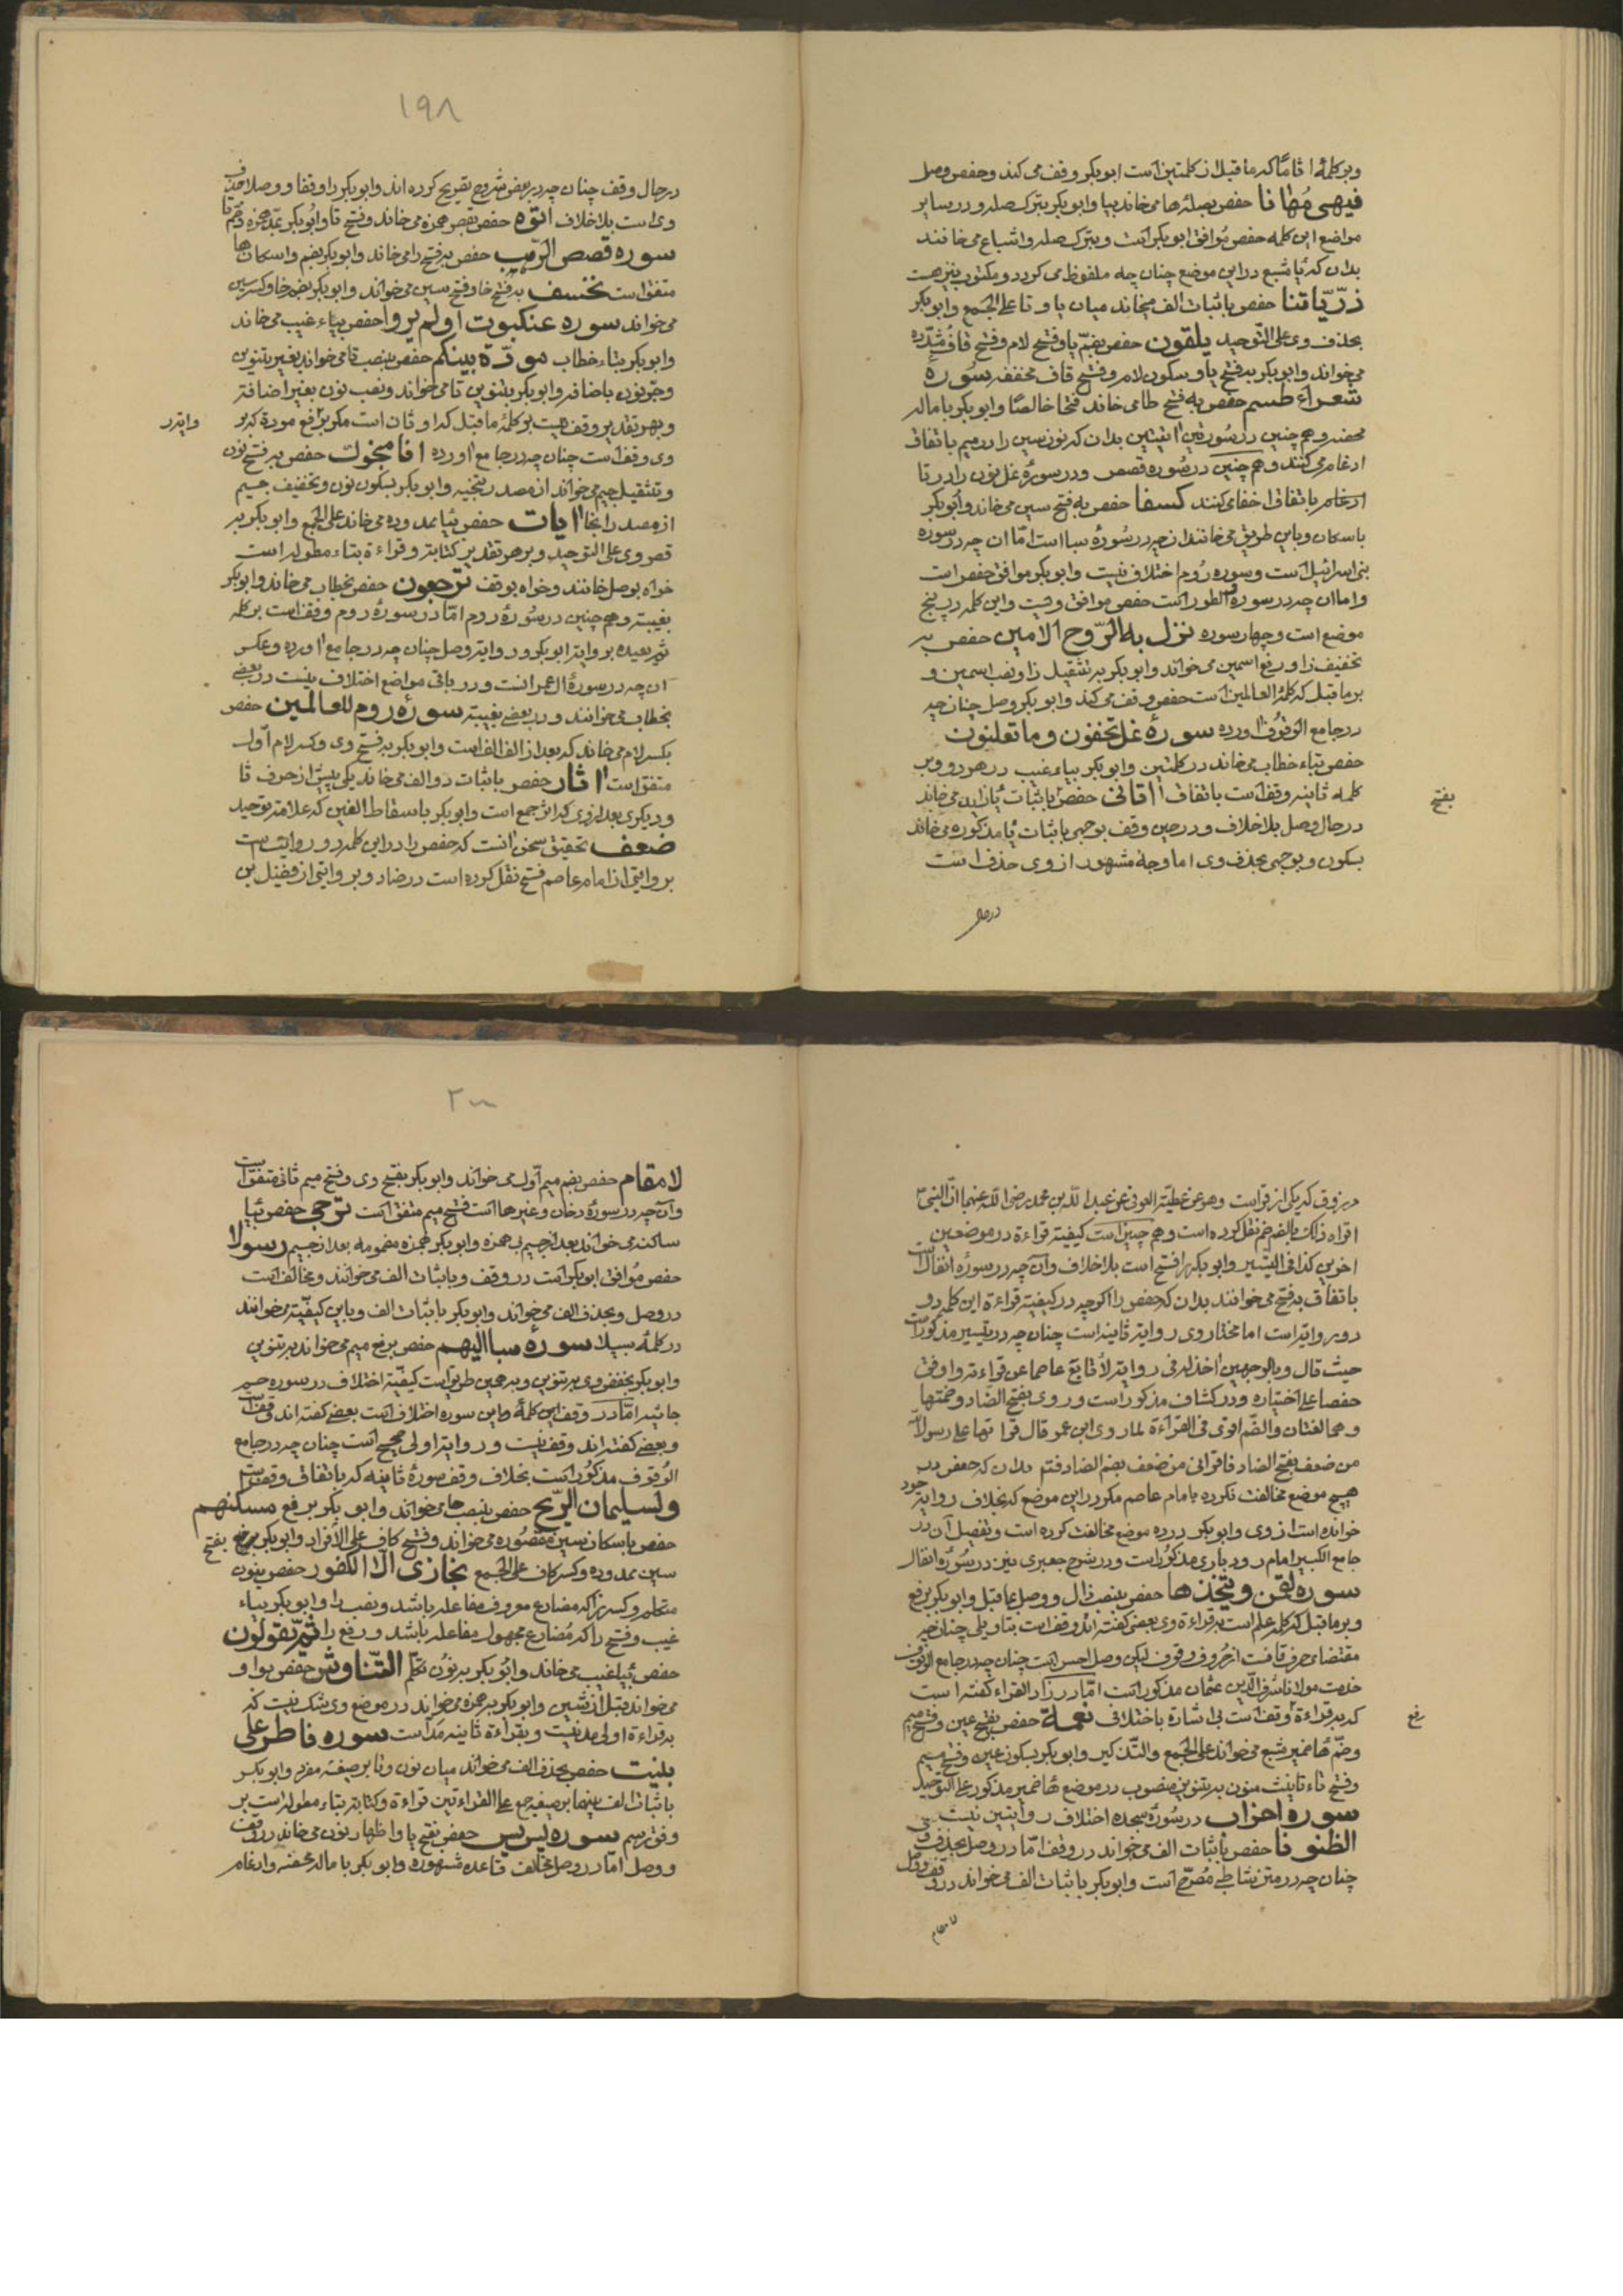 وبر کلمهٔ اثاما که ماقبل از کلمتین است ابوبکر وقف می کند وحفص وصل
فیهی مُهَانا حفص بصلهٔ ها می خاند بیا وابوبکر بترک صله ودر سایر
مواضع این کلمه حفص مُوافق ابوبکر است وبترک صله واشباع می خانند
بدان که یا مشبع در این موضع چنان چه ملفوظ می گردد ومکتوب نیز هست
ذرّیّاتنا حفص باثبات الف میخاند میان یا وتا علی الجمع وابوبکر
بحذف وی علی التّوحید یلقّون حفص بضمّ یا وفتح لام وفتح قاف مُشدّده
می خواند وابوبکر به فتح یا وسکون لام وفتح قاف مخففه سُوره
شعراء طسم حفص به فتح طا می خاند فتحا خالصًا وابوبکر باماله
محضه وهم چنین در سُورتین اتیتین بدان که نون سین را در میم باتفاق
ادغام می کنند وهم چنین در سُوره قصص ودر سورهٔ نمل نون را در تا
باتفاق اخفا می کنند کسفا حفص به فتح سین می خاند وابوبکر
باسکان وباین طریق می خانند آن چه در سُورهٔ سبا است امّا آن چه در سوره
بنی اسرائیل است وسوره رُوم اختلاف نیست وابوبکر موافق حفص است
واما آن چه در سوره والطور است حفص موافق ویست واین کلمه در پنج
موضع است وچهار سوره نزل به الرّوح الامین حفص به
تخفیف زا ورفع اسمین می خواند وابوبکر به تثقیل زا ونصب اسمین و
بر ماقبل که کلمهٔ العالمین است حفص وقف می کند وابوبکر وصل چنان چه
در جامع الوقوف آورده سورهٔ نمل تخفون وما تعلنون
حفص بتاء خطاب می خاند در کلمتین وابوبکر بیاء غیب در هر دو وبر
کلمه ثانیه وقف است باتفاق اٰتانی حفص باثبات یا زاید می خاند
بفتح
در حال وصل بلاخلاف ودر حین وقف بوجهی باثبات یا مذکوره می خاند
بسکون وبوجهی بحذف وی اما وجه مشهور از وی حذف است
درحال
١٩٨
در حال وقف چنان چه در بعض شروح تصریح کرده اند وابوبکر را وقفا ووصلا حذف
وی است بلاخلاف اتوه حفص بقصر همزه می خاند وفتح تا وابُوبکر بمدّ همزه وضم تا
سوره قصص الرّهب حفص به فتح را می خاند وابوبکر بضم واسکان ها
متفق است نخسف به فتح خا وفتح سین می خواند وابوبکر بضم خا وکسر سین
می خواند سوره عنکبوت اولم یروا حفص بیاء غیب می خاند
وابوبکر بتاء خطاب مودّة بینکم حفص بنصب تا می خواند بغیر تنوین
وجر نون باضافه وابوبکر بتنوین تا می خواند ونصب نون بغیر اضافه
وبهر تقدیر وقف نیست بر کلمهٔ ماقبل که اوثان است مکر برفع مودة که بر
وایتر
وی وقف است چنان چه در جامع آورده انا منجوک حفص به فتح نون
وتثقیل جیم می خواند از مصدر تنجیه وابوبکر بسکون نون وتخفیف جیم
از مصدر انجا اٰیات حفص بیا ممدوده می خاند علی الجمع وابوبکر به
قصر وی علی التوحید وبر هر تقدیر کتابة وقراءة بتاء مطوله است
خواه بوصل خانند وخواه بوقف ترجعون حفص بخطاب می خاند وابوبکر
بغیبة وهم چنین در سُورهٔ روم امّا در سورهٔ روم وقف است بر کلمه
ثم یعیده بر روایة ابوبکر ودر روایة وصل چنان چه در جامع آورده وعکس
آن چه در سورهٔ آل عمران است ودر باقی مواضع اختلاف نیست در بعض
بخطاب می خوانند ودر بعض بغیبة سورهٔ روم للعالمین حفص
بکسر لام می خاند که بعد از الف الف است وابوبکر به فتح وی وکسر لام اوّل
متفق است اٰثار حفص باثبات دو الف می خاند یکی پیش از حرف ثا
ودیگری بعد از وی که اثر جمع است وابوبکر باسقاط الفین که علامة توحید
ضعف تحقیق سخن آنست که حفص را در این کلمه دو روایت است
بروایتی از امام عاصم فتح نقل کرده است در ضاد وبروایتی از فضیل بن
مرزوق که یکی از قرّا است وهو عن عطیّة العوفی عن عبد الله بن محمد رضی الله عنهما انّ النبیّ
اقراه ذلک بالضم ضم نقل کرده است وهم چنین است کیفیّة قراءة در موضعین
اخرین کذا فی التیسیر وابوبکر را فتح است بلاخلاف وآن چه در سورهٔ انفال است
باتفاق به فتح می خوانند بدان که حفص را اگرچه در کیفیة قراءة این کلمه دو
روایة است اما مختار وی روایة ثانیه است چنان چه در تیسیر مذکور است
حیث قال وبالوجهین اخذ له فی روایة لاتابع عاصما عن قراءته واوفق
حفصا علی اختیاره ودر کشاف مذکور است وروی بفتح الضّاد وضمّها
وهما لغتان والضّم اقوی فی القراءة لما روی ابن عمر قال قراتها علی رسول اللّه
من ضعف بفتح الضاد فاقرانی من ضعف بضم الضاد فتم بدان که حفص در
هیچ موضع مخالفت نکرده با امام عاصم مکر در این موضع که بخلاف روایة خود
خوانده است از وی وابوبکر در ده موضع مخالفت کرده است وتفصیل آن در
جامع الکبیر امام رودباری مذکور است ودر شرح جعبری نیز در سُورهٔ انفال
سورهٔ لقمن ویتخذها حفص بنصب ذال ووصل بماقبل وابوبکر برفع
وبر ماقبل که کلمه علم است به قراءة وی بعضی گفته اند وقف است بتاویلی چنان چه
مقتضای حرف قاف است از حُروف وقوف لیکن وصل احسن است چنان چه در جامع الوقوف
خدمت مولانا شرف الدّین عثمان مذکور است امّا در زاد القراء گفته است
که بر قراءة رفع وقف است بی اشارة باختلافی نعمة حفص بفتح عین وفتح میم
رفع
وضمّ ها ضمیر مشبع می خواند علی الجمع والتّذکیر وابوبکر بسکون عین وفتح میم
وفتح تاء تانیث منون به تنوین منصوب در موضع ها ضمیر مذکور علی التوحید
سوره احزاب در سُورهٔ سجده اختلاف روایتین نیست
الظنونا حفص باثبات الف می خواند در وقف امّا در وصل بحذف وی
چنان چه در متن شاطبی مُصرّح است وابوبکر باثبات الف می خواند در وقف ووصل
لا مقام
٢٠٠
لا مقام حفص بضم میم اول می خواند وابوبکر بفتح وی وفتح میم ثانی متفق است
وآن چه در سورهٔ دخان وغیرها است فتح میم متفق است ترجی حفص بیا
ساکنه می خواند بعد از جیم بی همزه وابوبکر همزه مضمومه بعد از جیم رسولا
حفص مُوافق ابوبکر است در وقف وباثبات الف می خوانند ومخالف است
در وصل وبحذف الف می خواند وابوبکر باثبات الف وباین کیفیّة می خوانند
در کلمهٔ سبیلا سورهٔ سبا الیهم حفص برفع میم می خواند به تنوین
وابوبکر بخفض وی به تنوین وبهمین طریق است کیفیّة اختلاف در سوره حم
جاثیه امّا در وقف این کلمهٔ باین سوره اختلاف است بعضی گفته اند وقف است
وبعضی گفته اند وقف نیست وروایة اولی صحیح است چنان چه در جامع
الوُقوف مذکور است بخلاف وقف سورهٔ ثانیه که باتفاق وقف است
ولسلیمان الرّیح حفص بنصب حا می خواند وابوبکر برفع مسکنهم
حفص باسکان سین مقصُوره می خواند وفتح کاف علی الافراد وابوبکر بفتح
بفتح
سین ممدوده وکسر کاف علی الجمع نجازی الا الکفور حفص بنون
متکلم وکسر زا که مضارع معروف مفاعله باشد ونصب را وابوبکر بیاء
غیب وفتح زا که مُضارع مجهول مفاعله باشد ورفع را ثمّ یقولون
حفص بیا غیب می خاند وابُوبکر به نُون تکلّم التّناوش حفص بواو
می خواند قبل از شین وابوبکر به همزه می خواند در موضع وی شک نیست که
به قراءة اولی مد نیست وبقراءة ثانیه مدّ است سوره فاطر علی
بیّنت حفص بحذف الف می خواند میان نون وتا بر صیغه مفرد وابوبکر
باثبات الف بینهما بر صیغه جمع علی القراءتین قراءة وکتابة بتاء مطوله است بر
وفق رسم سوره یٰس یس حفص بفتح یا واظهار نون می خاند در وقف
ووصل امّا در وصل مخالف قاعده مشهوره وابوبکر باماله محضه وادغام